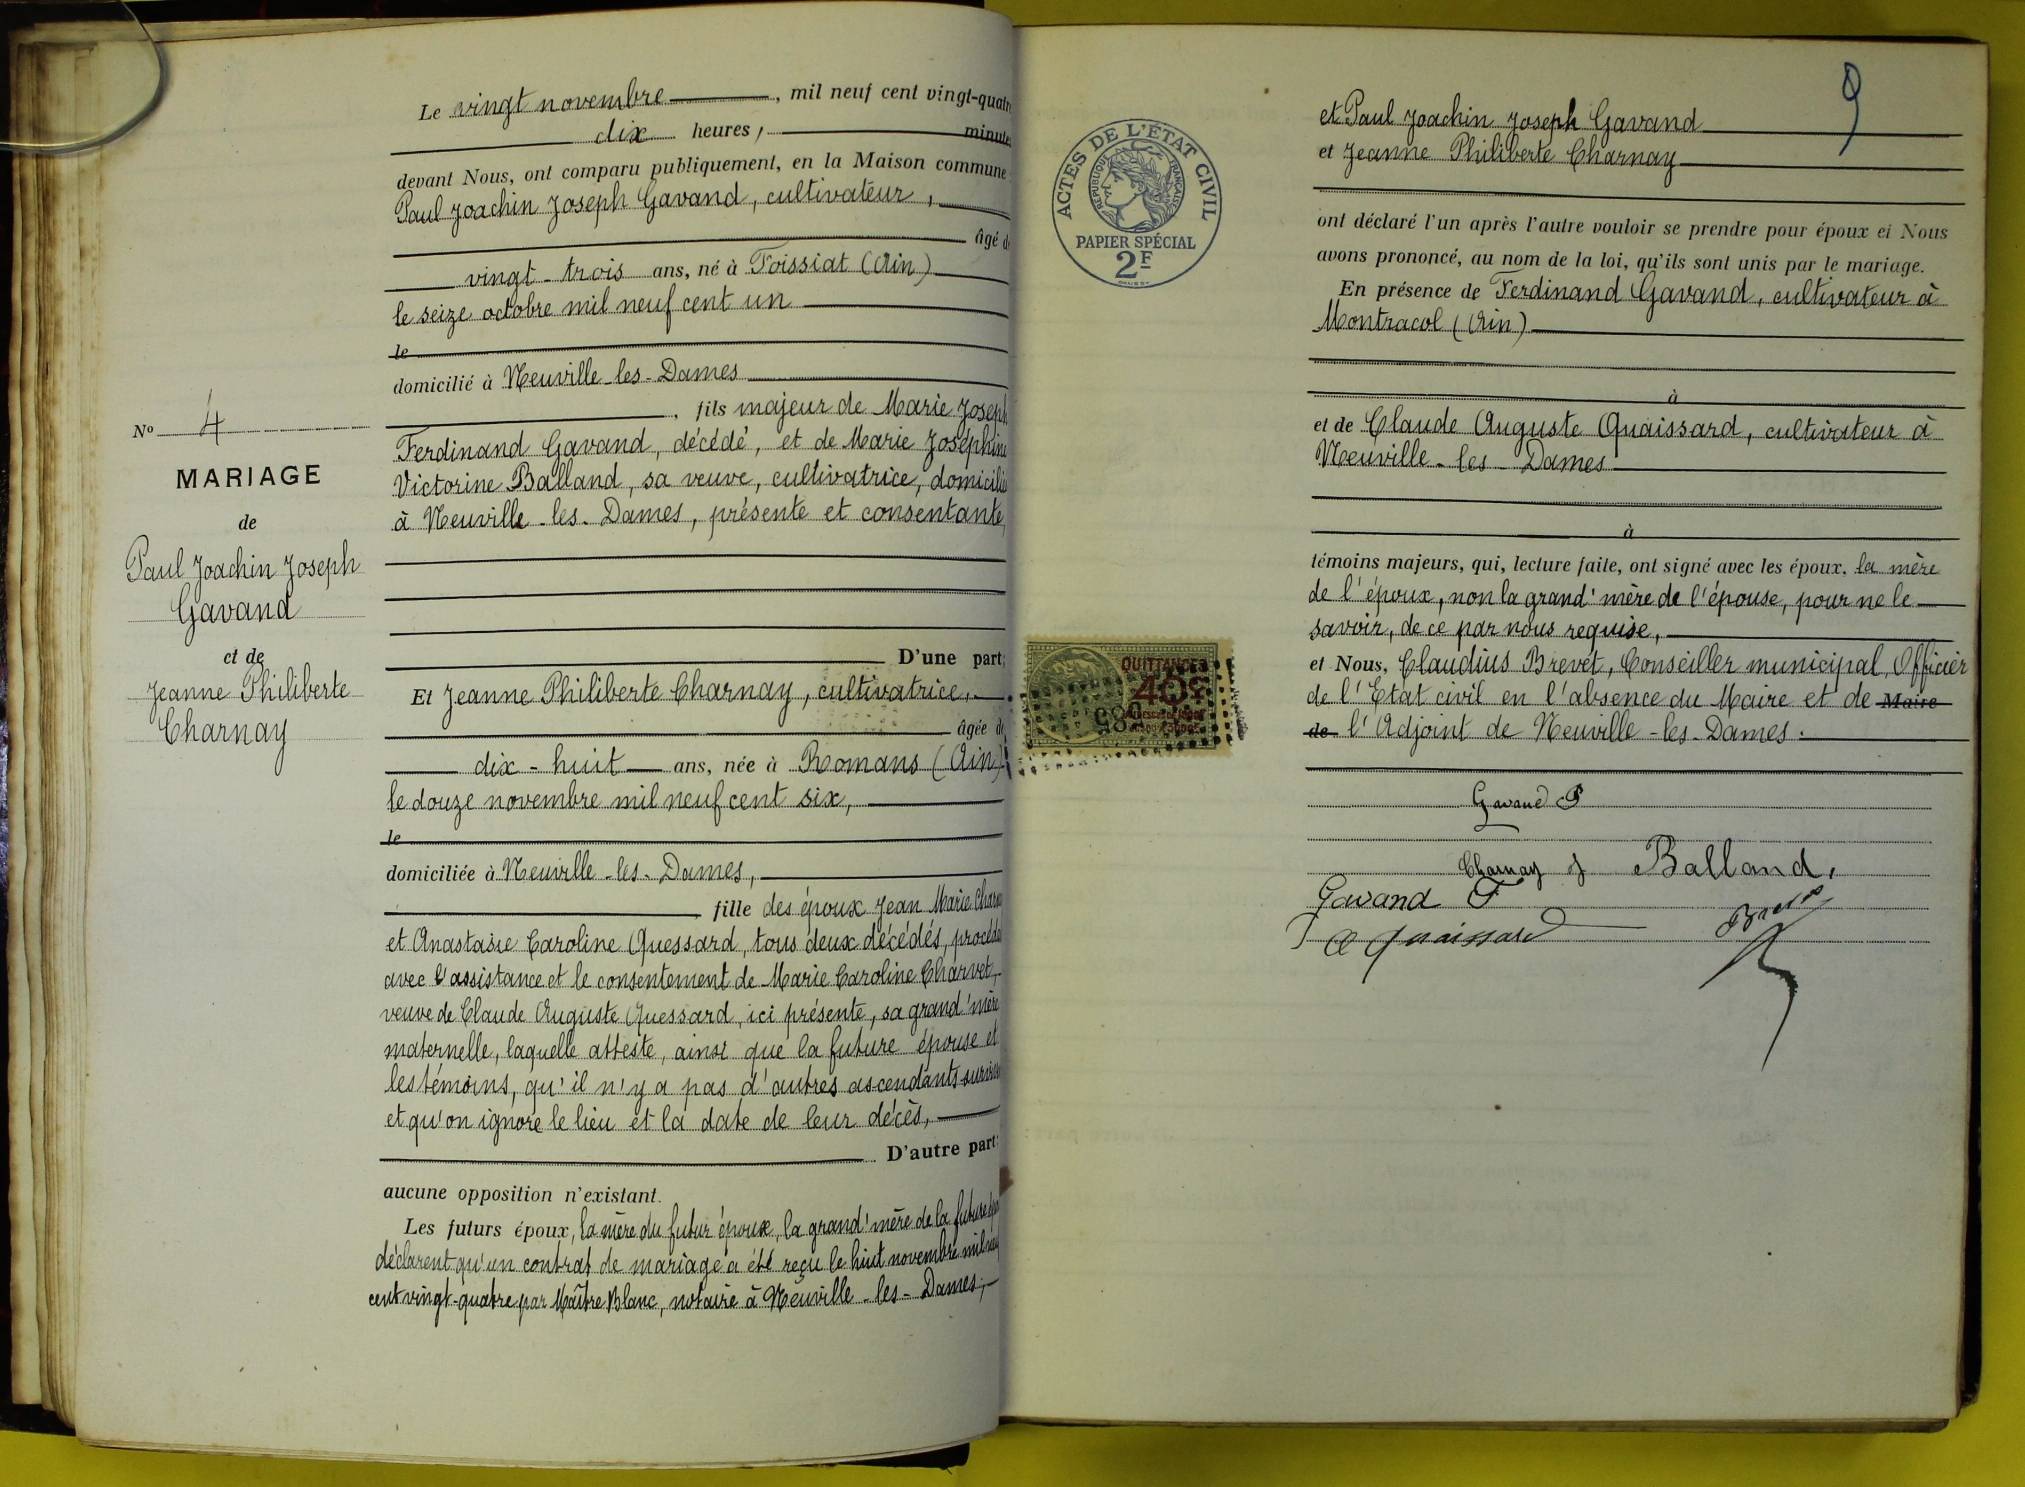 Le vingt novembre, mil neuf cent vingt-quatr
dix heures, minute
devant Nous, ont comparu publiquement, en la Maison commune
Paul Joachin Joseph Gavand, cultivateur,
âgé d
vingt-trois ans, né à Foissiat (Ain)
le seize octobre mil neuf cent un
le
domicilié à Neuville-les-Dames
, fils majeur de Marie Joseph
Ferdinand Gavand, décédé, et de Marie Joséphine
Victorine Balland, sa veuve, cultivatrice, domicilié
à Neuville-les-Dames, présente et consentante,
D'une part;
Et Jeanne Philiberte Charnay, cultivatrice,
âgée d
dix-huit ans, née à Romans (Ain)
le douze novembre mil neuf cent six,
le
domiciliée à Neuville-les-Dames,
fille des époux Jean Marie Charn
et Anastasie Caroline Quessard, tous deux décédés, procéda
avec l'assistance et le consentement de Marie Caroline Charvet,
veuve de Claude Auguste Quessard, ici présente, sa grand'mère
maternelle, laquelle atteste, ainsi que la future épouse et
les témoins, qu'il n'y a pas d'autres ascendants surviva
et qu'on ignore le lieu et la date de leur décès,
D'autre part:
aucune opposition n'existant.
Les futurs époux, la mère du futur époux, la grand'mère de la future
déclarent qu'un contrat de mariage a été reçu le huit novembre mil neu
cent vingt-quatre par Maître Blanc, notaire à Neuville-les-Dames;
No 4
MARIAGE
de
Paul Joachin Joseph
Gavand
et de
Jeanne Philiberte
Charnay
9
ACTES DE L'ÉTAT CIVIL
RÉPUBLIQUE FRANÇAISE
PAPIER SPÉCIAL
2F
QUITTANCES
40c
et Paul Joachin Joseph Gavand
et Jeanne Philiberte Charnay
ont déclaré l'un après l'autre vouloir se prendre pour époux et Nous
avons prononcé, au nom de la loi, qu'ils sont unis par le mariage.
En présence de Ferdinand Gavand, cultivateur à
Montracol (Ain)
à
et de Claude Auguste Quaissard, cultivateur à
Neuville-les-Dames
à
témoins majeurs, qui, lecture faite, ont signé avec les époux, la mère
de l'époux, non la grand'mère de l'épouse, pour ne le
savoir, de ce par nous requise,
et Nous, Claudius Brevet, Conseiller municipal, Officier
de l'Etat civil en l'absence du Maire et de Maire
de l'Adjoint de Neuville-les-Dames.
Gavand P
Charnay J Balland,
Gavand F
Brevet
A Quaissard